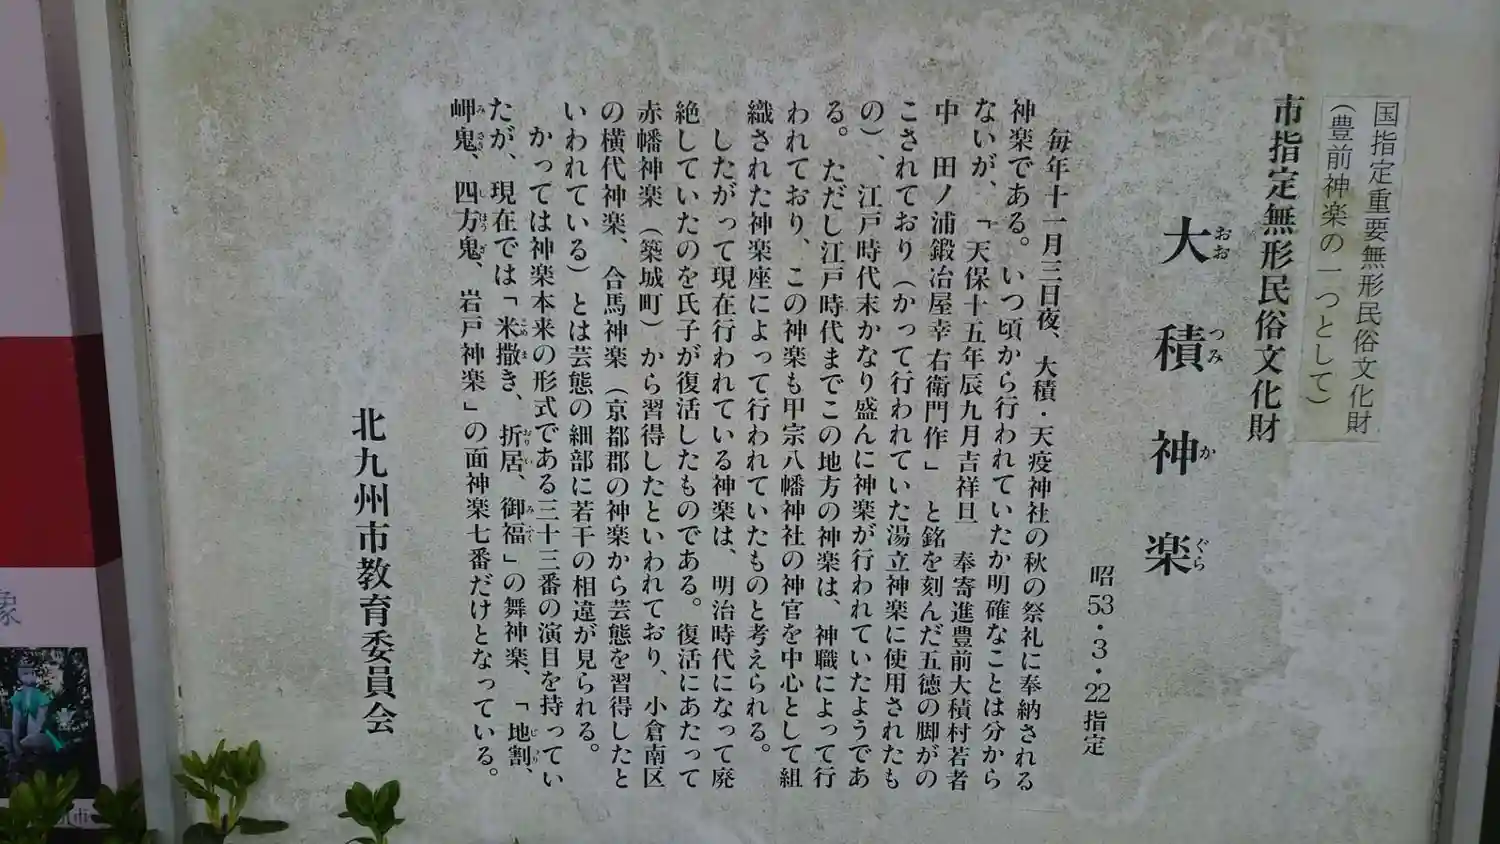 国指定重要無形民俗文化財
(豊前神楽の一つとして)
市指定無形民俗文化財
大積神楽
おおつみかぐら
昭53・3・22指定
毎年十一月三日夜、大積・天疫神社の秋の祭礼に奉納される
神楽である。いつ頃から行われていたか明確なことは分から
ないが、「天保十五年辰九月吉祥旦 奉寄進豊前大積村若者
中 田ノ浦鍛冶屋幸右衛門作」と銘を刻んだ五徳の脚がの
こされており(かって行われていた湯立神楽に使用されたも
の)、江戸時代末かなり盛んに神楽が行われていたようであ
る。ただし江戸時代までこの地方の神楽は、神職によって行
われており、この神楽も甲宗八幡神社の神官を中心として組
織された神楽座によって行われていたものと考えられる。
したがって現在行われている神楽は、明治時代になって廃
絶していたのを氏子が復活したものである。復活にあたって
赤幡神楽(築城町)から習得したといわれており、小倉南区
の横代神楽、合馬神楽(京都郡の神楽から芸態を習得したと
いわれている)とは芸態の細部に若干の相違が見られる。
かっては神楽本来の形式である三十三番の演目を持ってい
たが、現在では「米撒き、折居、御福」の舞神楽、「地割、
岬鬼、四方鬼、岩戸神楽」の面神楽七番だけとなっている。
北九州市教育委員会
象